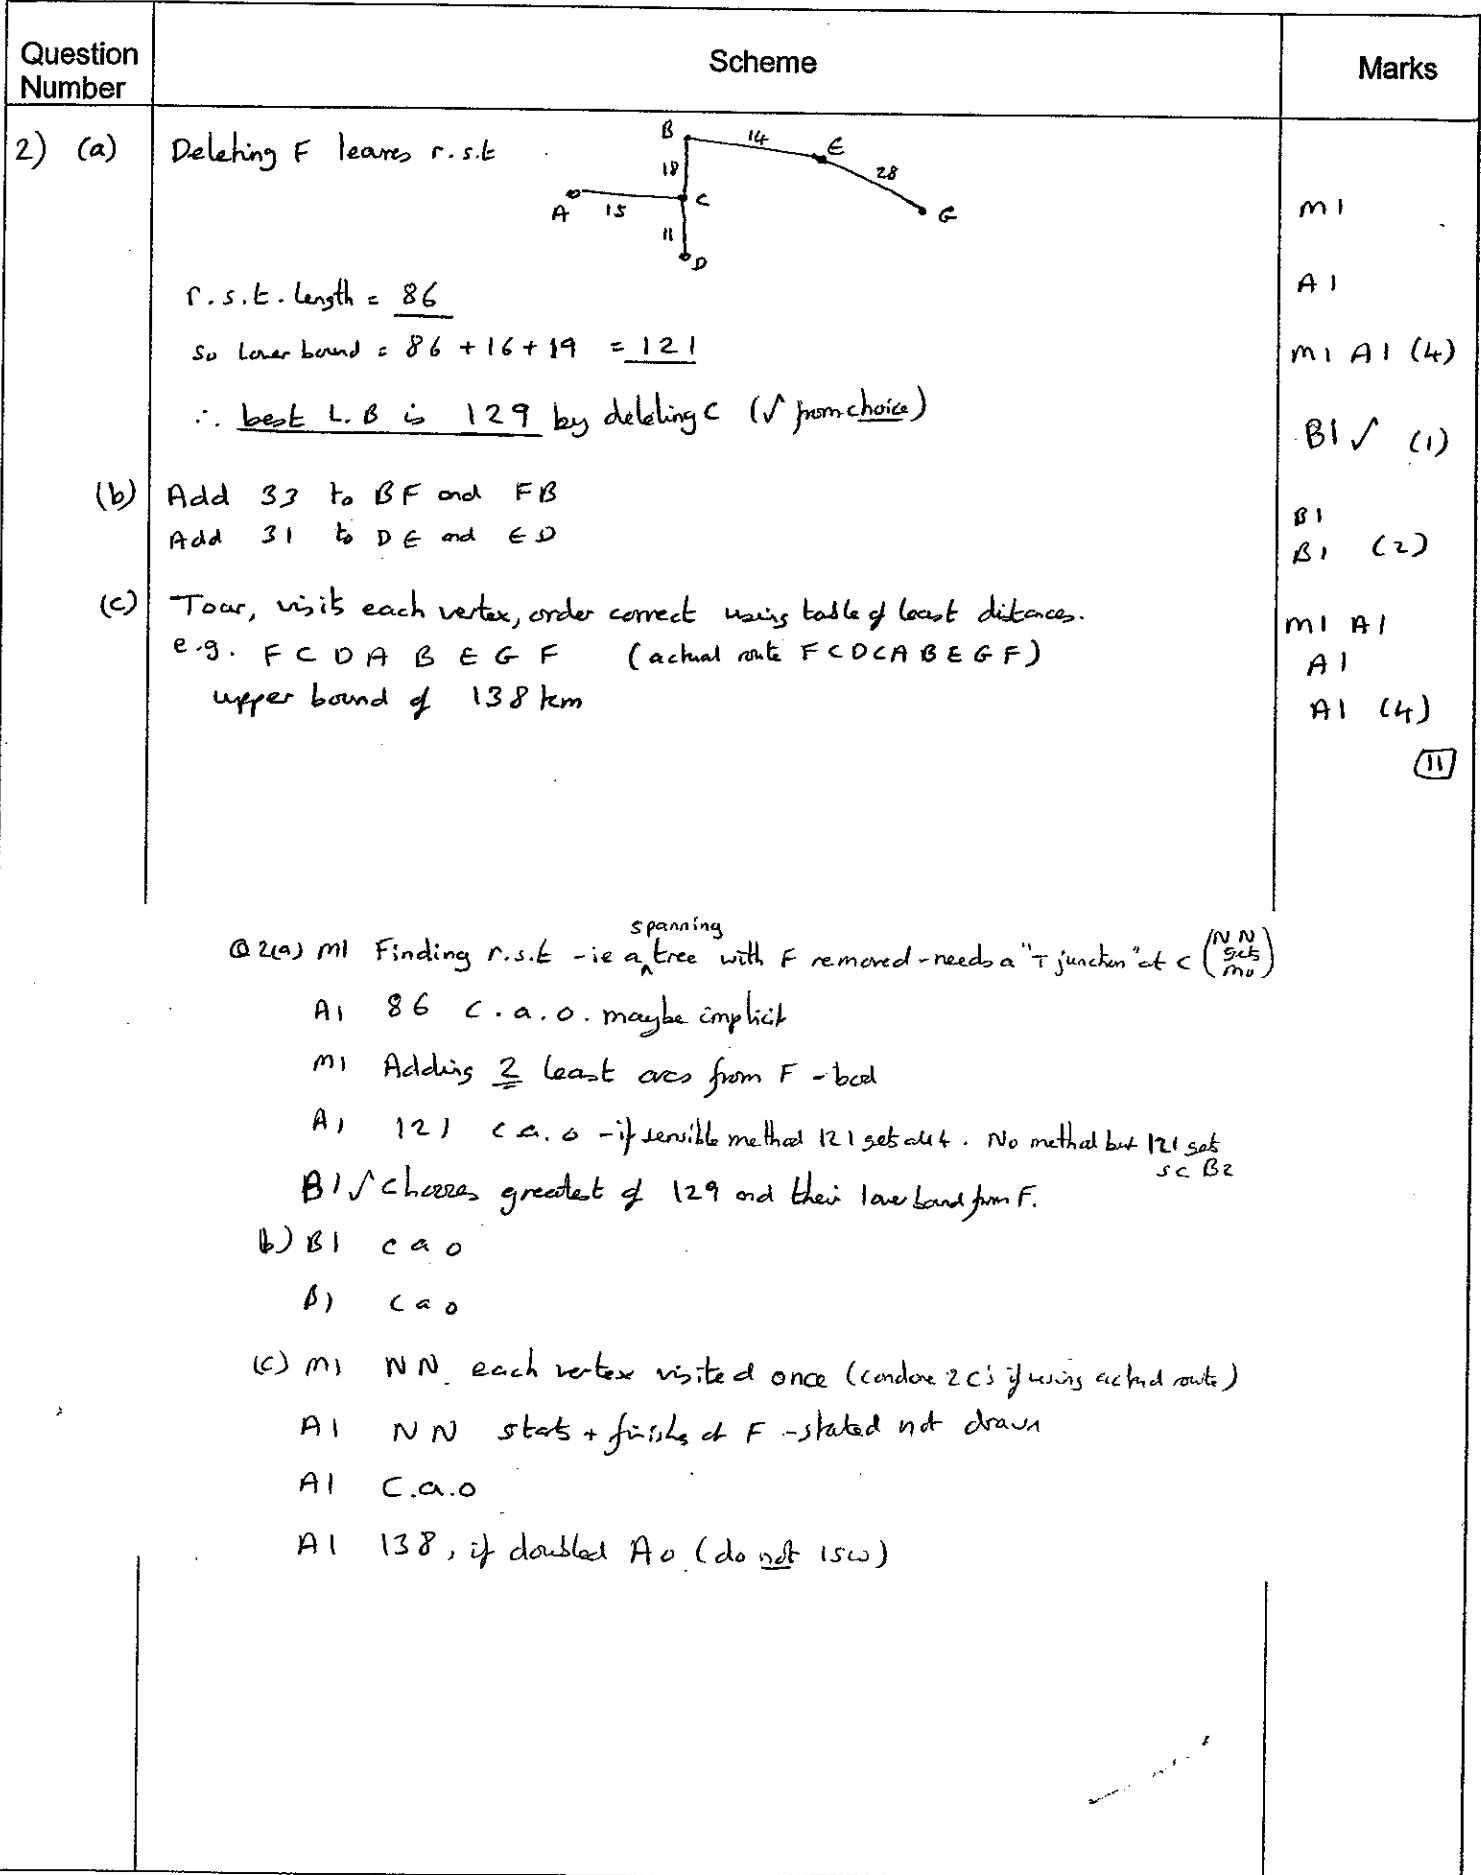 Question Number
Scheme
Marks
2) (a) Deleting F leaves r.s.t
B 14 E
18 28
A 15 C G
11
D
M1
r.s.t. length = 86 A1
So lower bound = 86 + 16 + 19 = 121 M1 A1 (4)
∴ best L.B is 129 by deleting C (√ from choice) B1√ (1)
(b) Add 33 to BF and FB B1
Add 31 to DE and ED B1 (2)
(c) Tour, visits each vertex, order correct using table of least distances. M1 A1
e.g. F C D A B E G F (actual route F C D C A B E G F) A1
upper bound of 138 km A1 (4)
11
Q2(a) M1 Finding r.s.t - ie a spanning tree with F removed - needs a "T junction" at C (NN gets M0)
A1 86 c.a.o. maybe implicit
M1 Adding 2 least arcs from F - bod
A1 121 c.a.o - if sensible method 121 gets all 4. No method but 121 gets
SC B2
B1√ Chooses greatest of 129 and their lower bound from F.
b) B1 cao
B1 cao
(c) M1 NN each vertex visited once (condone 2 C's if using actual route)
A1 NN starts + finishes at F - stated not drawn
A1 C.a.o
A1 138, if doubled A0 (do not isw)